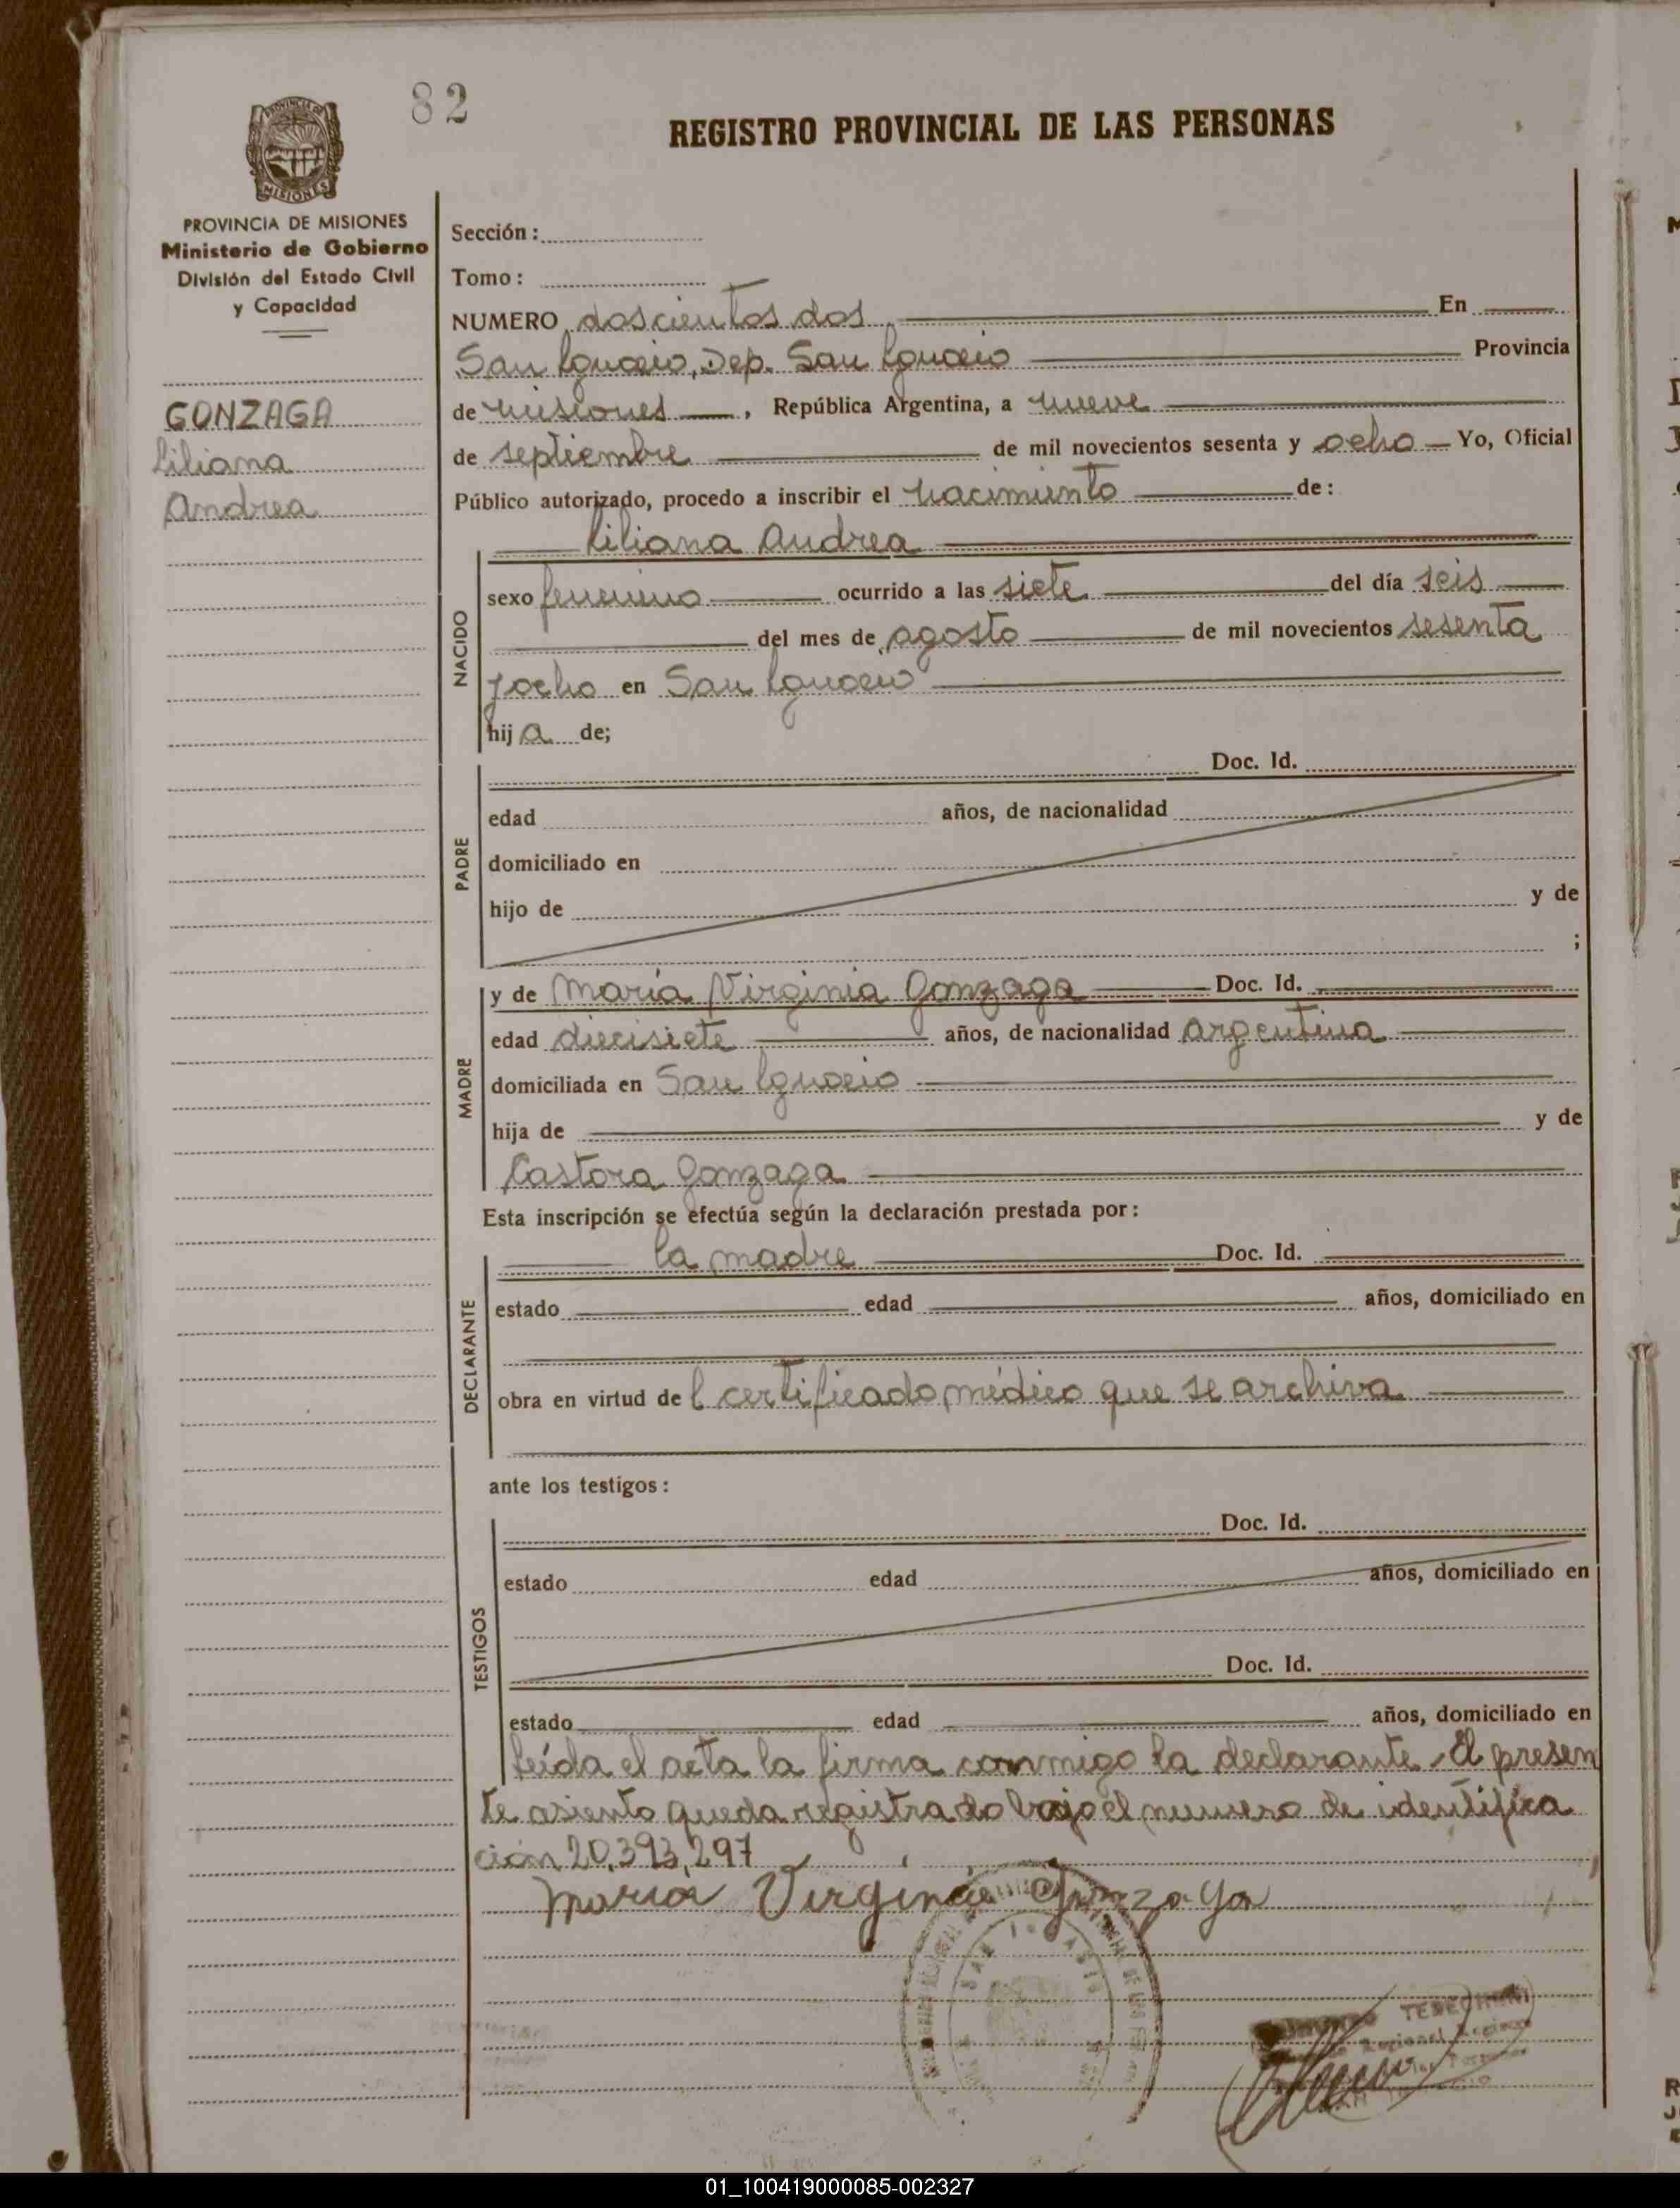 82
REGISTRO PROVINCIAL DE LAS PERSONAS
PROVINCIA DE MISIONES
MISIONES
PROVINCIA DE MISIONES
Ministerio de Gobierno
División del Estado Civil
y Capacidad
GONZAGA
Liliana
Andrea
Sección:
Tomo:
NUMERO doscientos dos En
San Ignacio, Dep. San Ignacio Provincia
de Misiones, República Argentina, a nueve
de septiembre de mil novecientos sesenta y ocho Yo, Oficial
Público autorizado, procedo a inscribir el nacimiento de:
Liliana Andrea
NACIDO
sexo femenino ocurrido a las siete del día seis
del mes de agosto de mil novecientos sesenta
y ocho en San Ignacio
hij a de;
PADRE
Doc. Id.
edad años, de nacionalidad
domiciliado en
hijo de y de
;
MADRE
y de María Virginia Gonzaga Doc. Id.
edad diecisiete años, de nacionalidad argentina
domiciliada en San Ignacio
hija de y de
Castora Gonzaga
Esta inscripción se efectúa según la declaración prestada por:
DECLARANTE
la madre Doc. Id.
estado edad años, domiciliado en
obra en virtud de l certificado médico que se archiva
ante los testigos:
TESTIGOS
Doc. Id.
estado edad años, domiciliado en
Doc. Id.
estado edad años, domiciliado en
Leída el acta la firma conmigo la declarante. El presen
te asiento queda registrado bajo el numero de identifica
ción 20,393,297
María Virginia Gonzaga
SAN IGNACIO
01_100419000085-002327